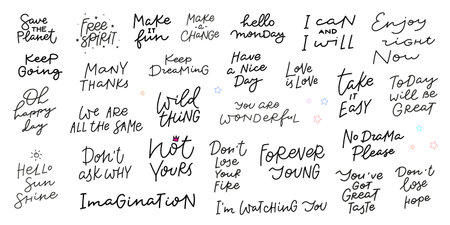 Save the
Planet
Free
SPIRIT
Make
it
fun
Make
a
CHANGE
hello
monday
I CAN
AND
I WILL
Enjoy
right
Now
Keep
Going
MANY
THANKS
Keep
DReaMING
Have
a Nice
Day
Love
is Love
take
IT
EASY
ToDay
WILL BE
Great
Oh
happy
day
We ARE
ALL the SAME
WilD
THING
YOU ARE
WONDERFUL
No DRaMa
Please
HELLO
Sun
SHINE
Don't
ASK WHY
Not
YOURS
Don't
Lose
Your
FIRE
FOREVER
YOUNG
You've
GOT
GREAT
Taste
Don't
lose
Hope
ImaGINatION
I'm WatCHING YOU